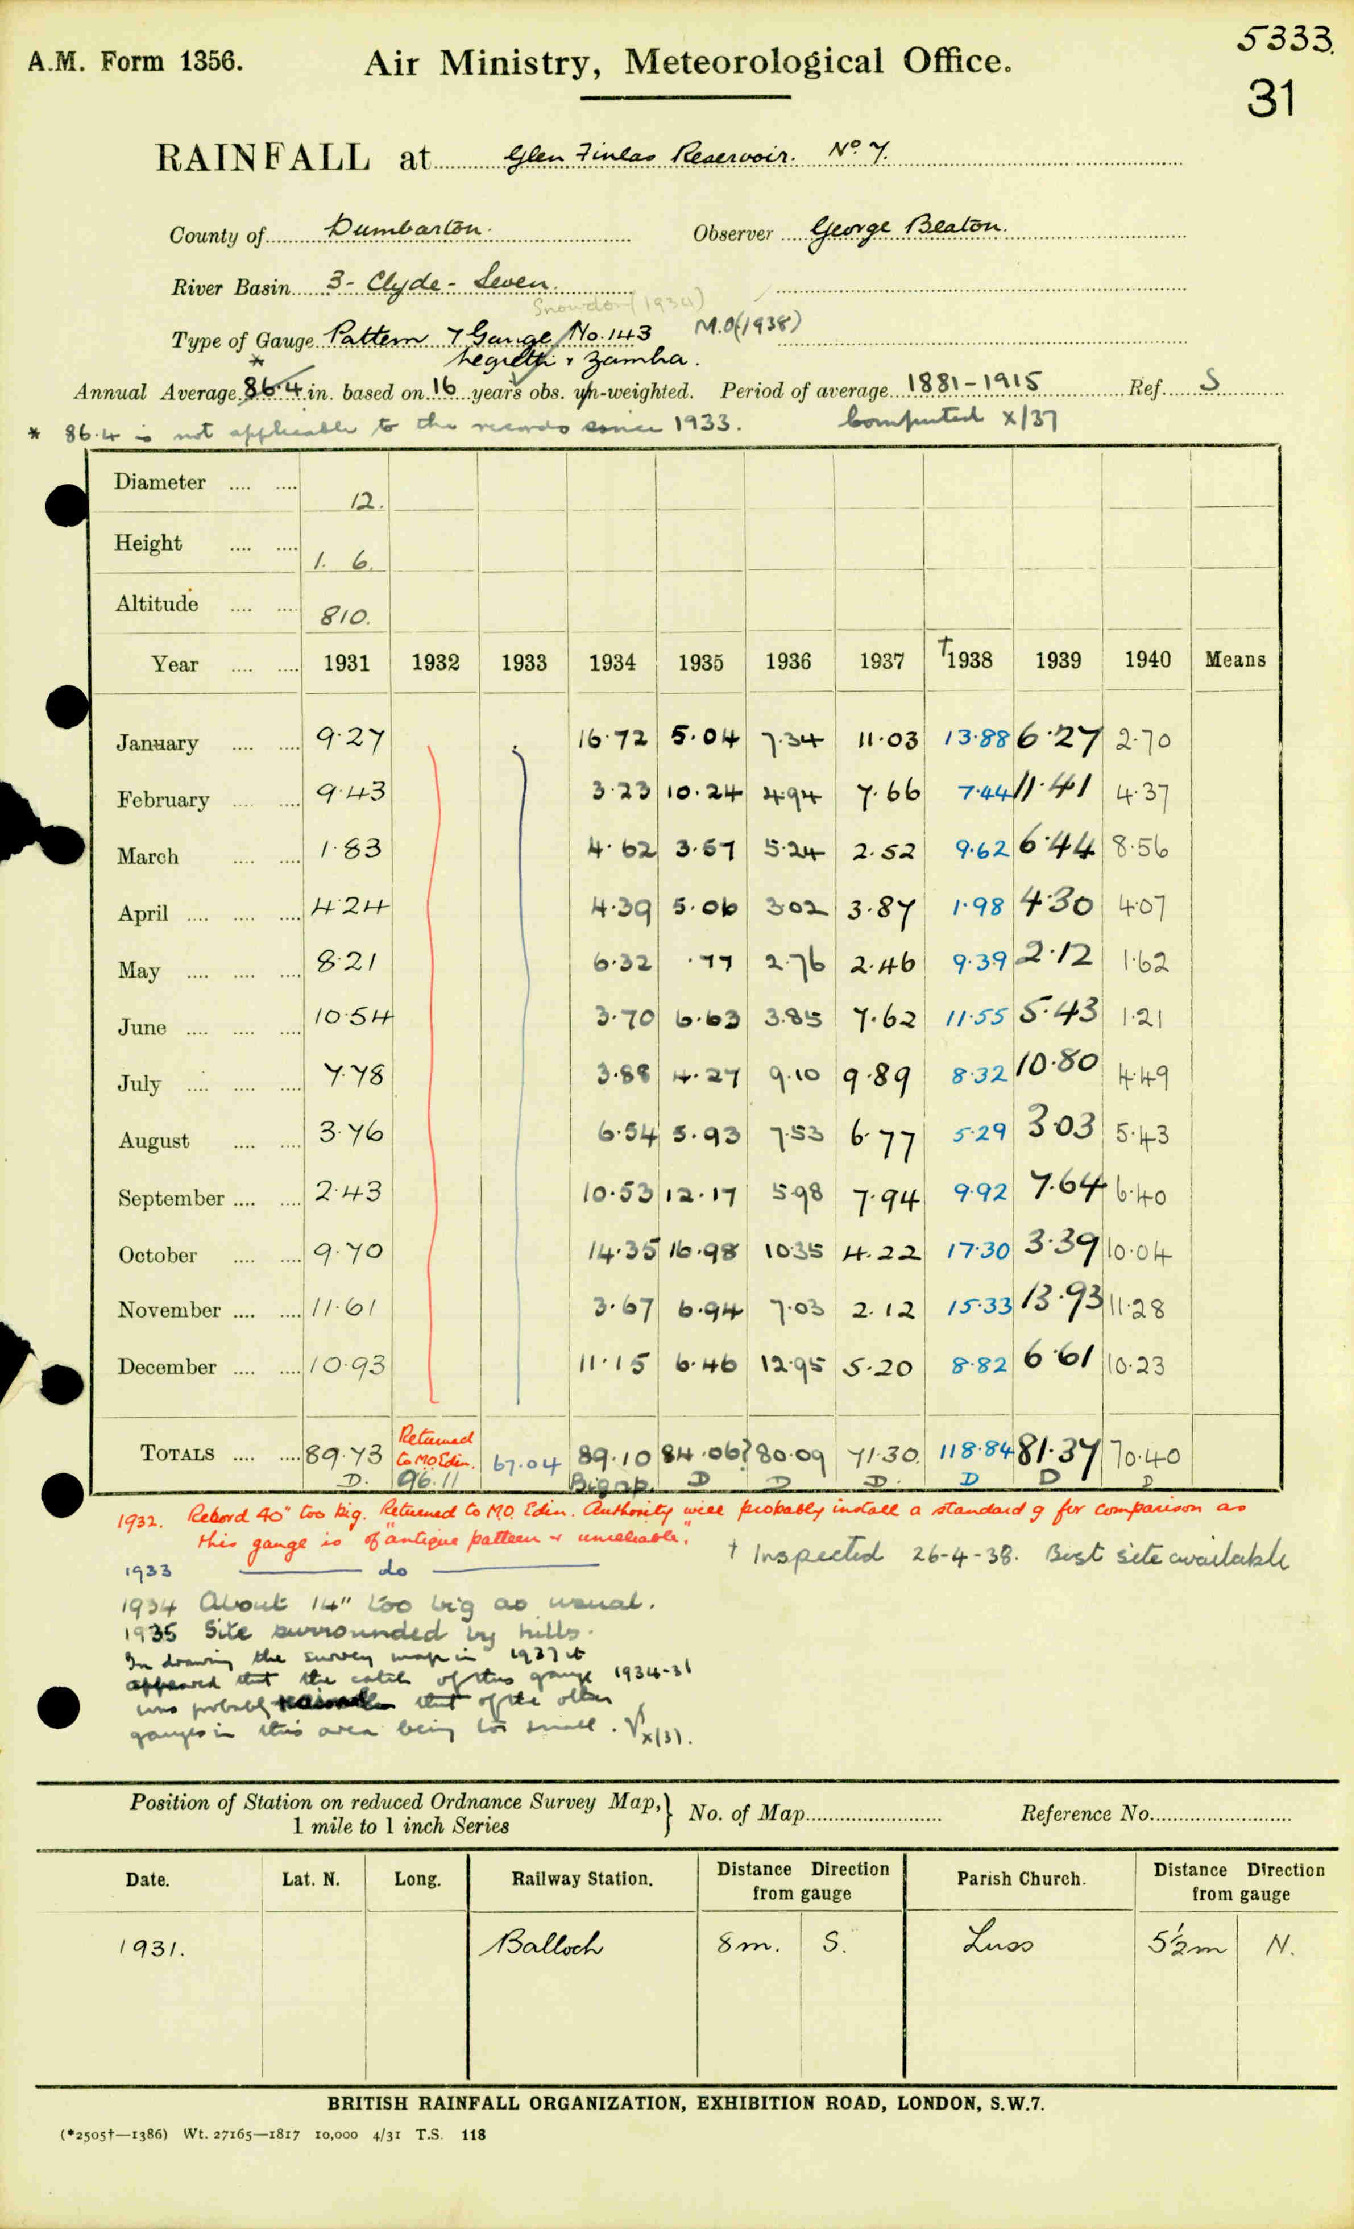 5333.
A.M. Form 1356. Air Ministry, Meteorological Office.
31
RAINFALL at Glen Finlas Reservoir. No 7.
County of Dumbarton. Observer George Beaton.
River Basin 3- Clyde - Leven.
Snowdon (1934)
Type of Gauge Pattern 7 Gauge No. 143 M.O. (1938)
Negretti & Zambra.
Annual Average 86.4 in. based on 16 years obs. un-weighted. Period of average 1881-1915 Ref. S
* 86.4 is not applicable to the records since 1933. Computed X/37
Diameter .... .... 12.
Height .... .... 1. 6.
Altitude .... .... 810.
Year .... .... 1931 1932 1933 1934 1935 1936 1937 †1938 1939 1940 Means
January .... .... 9.27 16.72 5.04 7.34 11.03 13.88 6.27 2.70
February .... .... 9.43 3.23 10.24 4.94 7.66 7.44 11.41 4.37
March .... .... 1.83 4.62 3.57 5.24 2.52 9.62 6.44 8.56
April .... .... .... 4.24 4.39 5.06 3.02 3.87 1.98 4.30 4.07
May .... .... .... 8.21 6.32 .77 2.76 2.46 9.39 2.12 1.62
June .... .... .... 10.54 3.70 6.63 3.85 7.62 11.55 5.43 1.21
July .... .... .... 7.78 3.88 4.27 9.10 9.89 8.32 10.80 4.49
August .... .... 3.76 6.54 5.93 7.53 6.77 5.29 3.03 5.43
September .... .... 2.43 10.53 12.17 5.98 7.94 9.92 7.64 6.40
October .... .... 9.70 14.35 16.98 10.35 4.22 17.30 3.39 10.04
November .... .... 11.61 3.67 6.94 7.03 2.12 15.33 13.93 11.28
December .... .... 10.93 11.15 6.46 12.95 5.20 8.82 6.61 10.23
Returned
to M.O. Edin.
TOTALS .... .... 89.73 96.11 67.04 89.10 84.06? 80.09 71.30. 118.84 81.37 70.40
D. Big rp. D D D. D D D
1932. Record 40" too big. Returned to MO. Edin. Authority will probably install a standard g for comparison as
this gauge is of "antique pattern & unreliable."
† Inspected 26-4-38. Best site available
1933 do
1934 About 14" too big as usual.
1935 Site surrounded by hills.
In drawing the survey map in 1937 it
appeared that the catch of this gauge 1934-31
was probably that of the other
gauges in this area being too small. X/37.
Position of Station on reduced Ordnance Survey Map, } No. of Map Reference No.
1 mile to 1 inch Series
Date. Lat. N. Long. Railway Station. Distance Direction from gauge Parish Church. Distance Direction from gauge
1931. Balloch 8m. S. Luss 5½m N.
BRITISH RAINFALL ORGANIZATION, EXHIBITION ROAD, LONDON, S.W.7.
(*2505†—1386) Wt. 27165—1817 10,000 4/31 T.S. 118